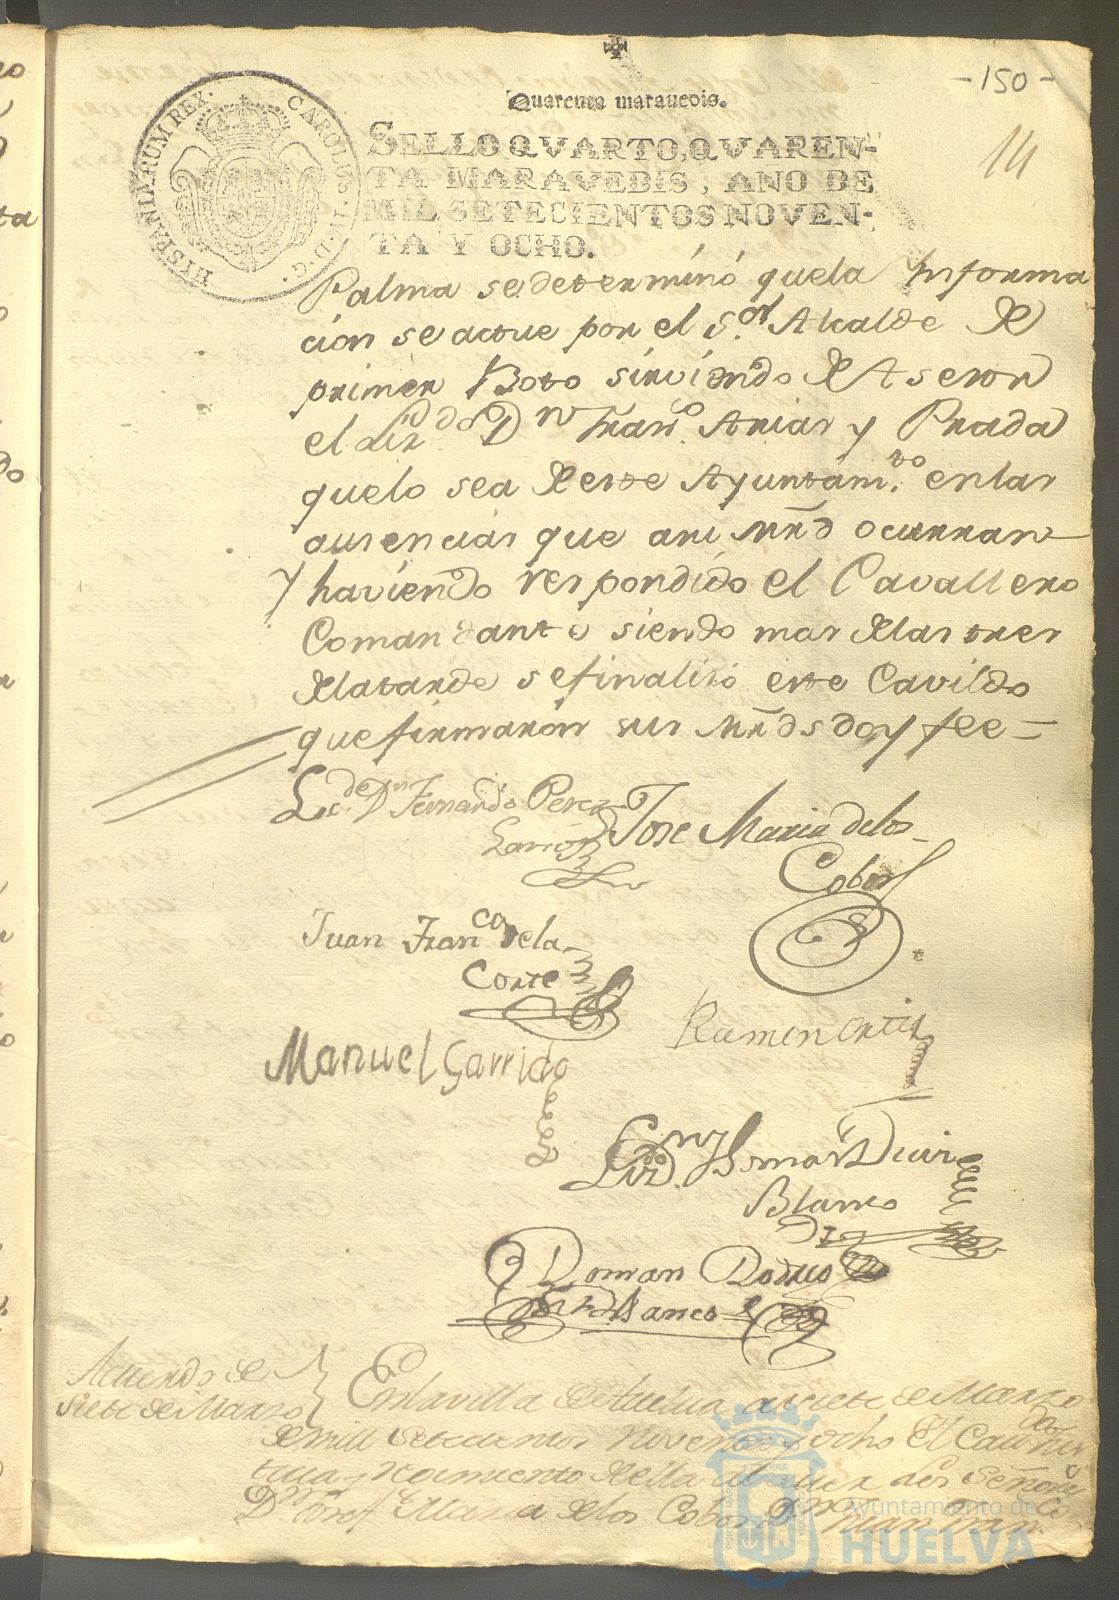 -150-
Quarenta maravedis.
14
HISPANIARUM REX. CAROLUS. IV. D. G.
SELLO QVARTO, QVAREN-
TA MARAVEDIS, AÑO DE
MIL SETECIENTOS NOVEN-
TA Y OCHO.
Palma se determinó quela Informa
cion se actue por el S.or Alcalde de
primer Boto sirviendo de Asesor
el Liz.do Dn Fran.co Arias y Prada
quelo sea de este Ayuntam.to enlas
ausencias que asi Mrd ocurran
y haviendo respondido el Cavallero
Comandante siendo mas delas tres
delatarde sefinalizó este Cavildo
que firmaron sus Mrds doy fee=
Lc.do Dn Fernando Perez
Jose Maria delos
Cobos
Juan Fran.co dela
Corte
Ramon Ortiz
Manuel Garrido
Blanco
Roman
Blanco
Acuerdo de
Siete de Marzo
Enlavilla de Huelva a siete de Marzo
de mill setecientos noventa y ocho El Cau.do Jus
ticia y regimiento de ella a saver los Señores
Dn Josef Maria de los Cobos Dn Juan Fran.co
Ayuntamiento de
HUELVA